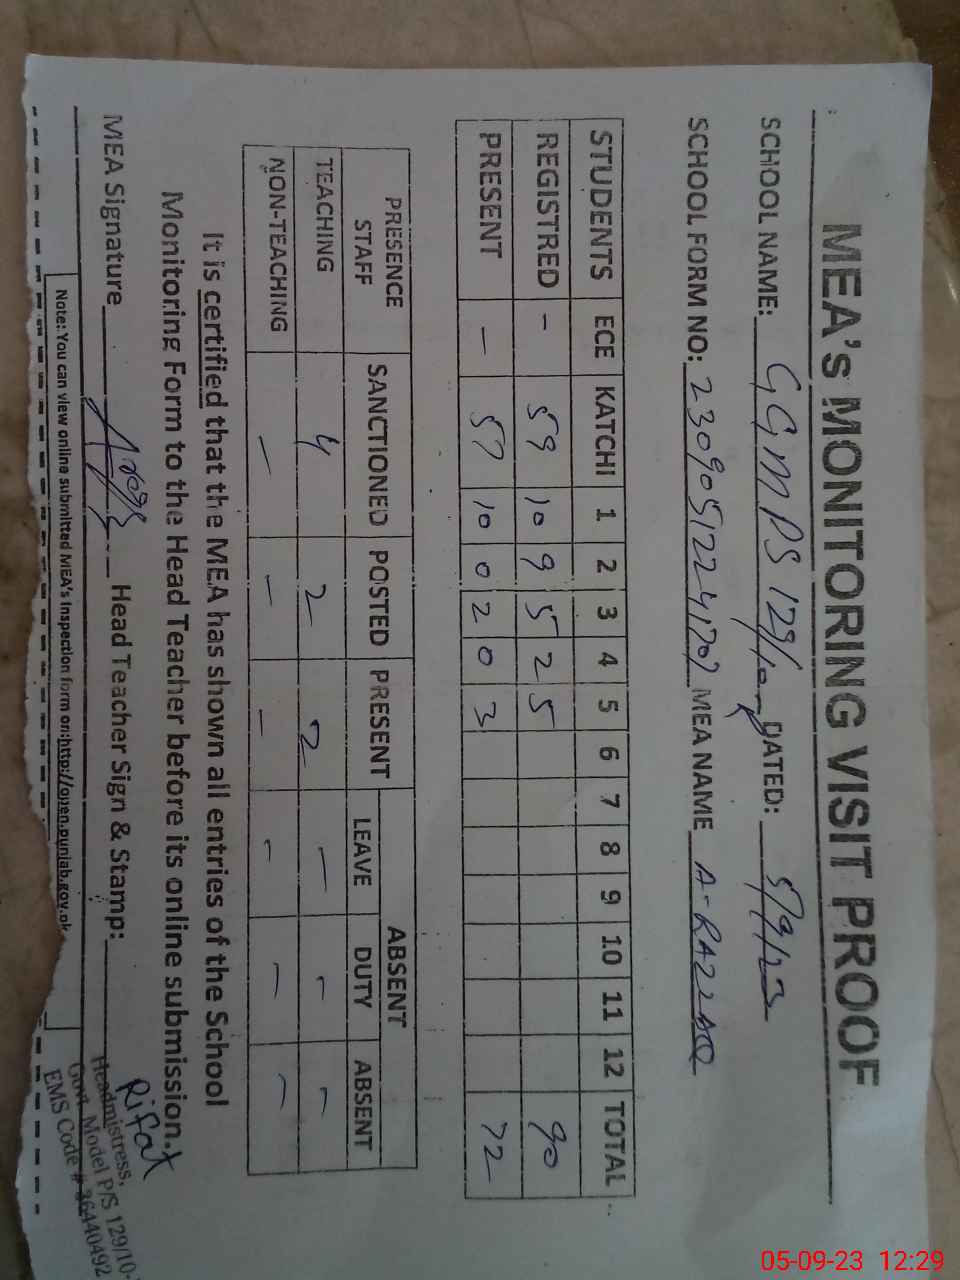 MEA's MONITORING VISIT PROOF
SCHOOL NAME: GGMPS 129/10-R DATED: 5/9/23
SCHOOL FORM NO: 2309051224170? MEA NAME A-RAZZAQ
STUDENTS ECE KATCHI 1 2 3 4 5 6 7 8 9 10 11 12 TOTAL
REGISTRED - 59 10 9 5 2 5 90
PRESENT - 57 10 0 2 0 3 72
PRESENCE STAFF SANCTIONED POSTED PRESENT ABSENT
LEAVE DUTY ABSENT
TEACHING 4 2 2 - - -
NON-TEACHING - - - - - -
It is certified that the MEA has shown all entries of the School
Monitoring Form to the Head Teacher before its online submission.
Rifat
MEA Signature Head Teacher Sign & Stamp:
Headmistress,
Govt. Model P/S 129/10-
EMS Code # 36440492
Note: You can view online submitted MEA's Inspection form on:http://open.punjab.gov.pk
05-09-23 12:29